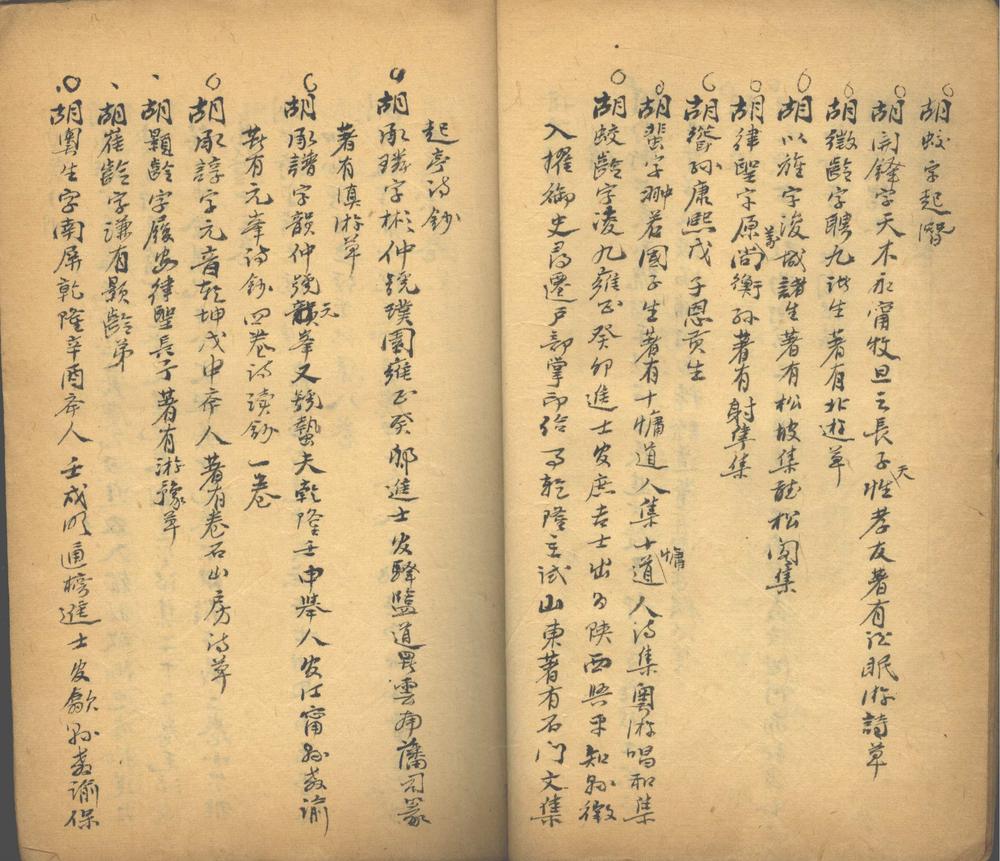 胡蛟字起潛
胡開鋒字天木永甯牧旦之長子性孝友著有泛眠游詩草
天
胡徵齡字聘九諸生著有北遊草
胡以旌字浚城諸生著有松坡集聽松閣集
胡律聖字原尚衡孫著有射隼集
胡孫康熙戊子恩貢生
胡蜚字翀若國子生著有十慵道人集十道人詩集粵游唱和集
慵
胡蛟齡字凌九雍正癸卯進士發庶吉士出為陝西興平知縣徵
入擢御史尋遷戶部掌印給事乾隆主試山東著有石門文集
起亭詩鈔
胡承璘字彬仲號璞園雍正癸卯進士發驛鹽道署雲南藩司篆
著有滇游草
胡承譜字韻仲號元峯又號蟄夫乾隆壬申舉人發仕甯縣教諭
著有元峯詩鈔四卷詩讀鈔一卷
胡承諄字元音乾坤戊申本人著有卷石山房詩草
胡顥齡字履安律聖長子著有游豫草
胡萑齡字謙有顥齡弟
胡生字南屏乾隆辛酉本人壬戌明通榜進士發歙縣教諭保